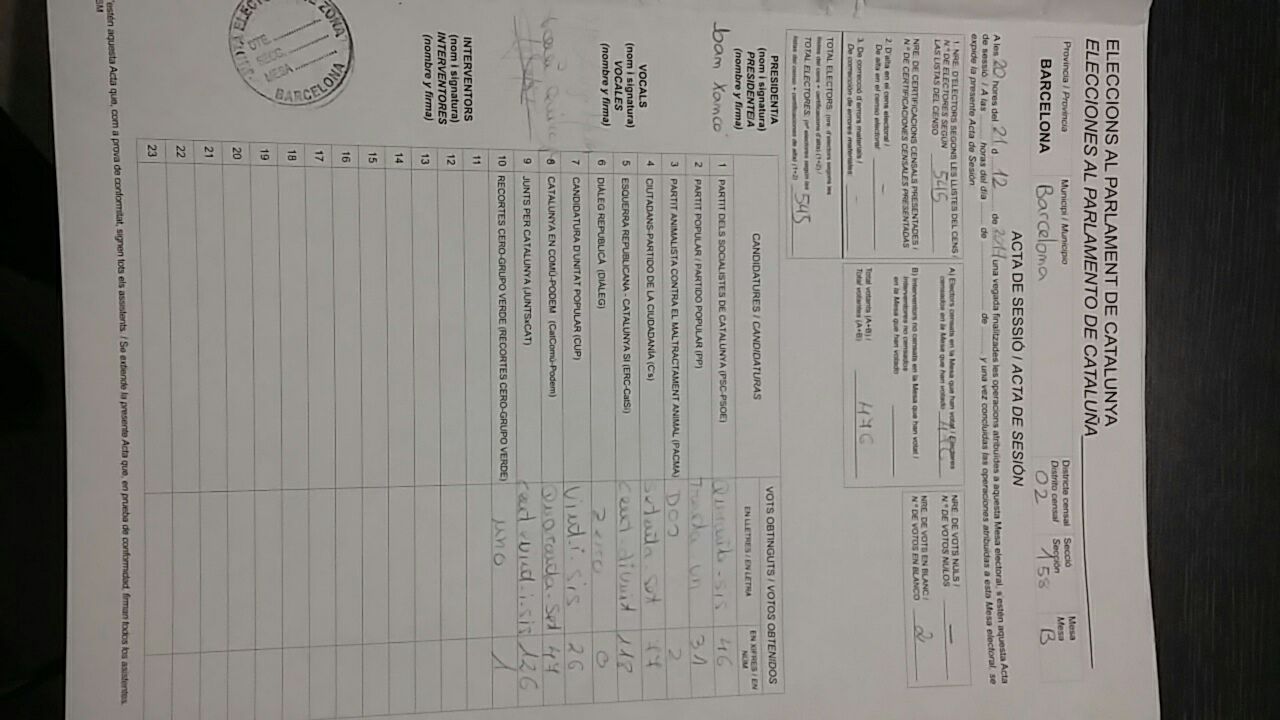 ELECCIONS AL PARLAMENT DE CATALUNYA
ELECCIONES AL PARLAMENTO DE CATALUÑA
Província / Provincia
BARCELONA
Municipi / Municipio
Barcelona
Districte censal
Distrito censal
02
Secció
Sección
158
Mesa
Mesa
B
ACTA DE SESSIÓ / ACTA DE SESIÓN
A les 20 hores del 21 d 12 de 2017 una vegada finalitzades les operacions atribuïdes a aquesta Mesa electoral, s'estén aquesta Acta
de sessió. / A las horas del día de de y una vez concluidas las operaciones atribuidas a esta Mesa electoral, se
expide la presente Acta de Sesión.
1. NRE. D'ELECTORS SEGONS LES LLISTES DEL CENS /
N.º DE ELECTORES SEGÚN
LAS LISTAS DEL CENSO 545
NRE. DE CERTIFICACIONS CENSALS PRESENTADES /
N.º DE CERTIFICACIONES CENSALES PRESENTADAS
2. D'alta en el cens electoral /
De alta en el censo electoral -
3. De correcció d'errors materials /
De corrección de errores materiales: -
TOTAL ELECTORS: (nre. d'electors segons les
llistes del cens + certificacions d'alta) (1+2) /
TOTAL ELECTORES: (nº electores según las
listas del censo + certificaciones de alta) (1+2) 545
A) Electors censats en la Mesa que han votat / Electores
censados en la Mesa que han votado 476
B) Interventors no censats en la Mesa que han votat /
Interventores no censados
en la Mesa que han votado
Total votants (A+B) /
Total votantes (A+B) 476
NRE. DE VOTS NULS /
N.º DE VOTOS NULOS —
NRE. DE VOTS EN BLANC /
N.º DE VOTOS EN BLANCO 2
CANDIDATURES / CANDIDATURAS
VOTS OBTINGUTS / VOTOS OBTENIDOS
EN LLETRES / EN LETRA
EN XIFRES / EN NÚM
1 PARTIT DELS SOCIALISTES DE CATALUNYA (PSC-PSOE) 46
2 PARTIT POPULAR / PARTIDO POPULAR (PP) Trenta un 31
3 PARTIT ANIMALISTA CONTRA EL MALTRACTAMENT ANIMAL (PACMA) DOS 2
4 CIUTADANS-PARTIDO DE LA CIUDADANÍA (C's) setanta-set 77
5 ESQUERRA REPUBLICANA - CATALUNYA SÍ (ERC-CatSí) cent-divuit 118
6 DIÀLEG REPUBLICÀ (DIÀLEG) Zero 0
7 CANDIDATURA D'UNITAT POPULAR (CUP) Vint-i-sis 26
8 CATALUNYA EN COMÚ-PODEM (CatComú-Podem) Quaranta-set 47
9 JUNTS PER CATALUNYA (JUNTSxCAT) cent-vint-i-sis 126
10 RECORTES CERO-GRUPO VERDE (RECORTES CERO-GRUPO VERDE) uno 1
11
12
13
14
15
16
17
18
19
20
21
22
23
PRESIDENT/A
(nom i signatura)
PRESIDENTE/A
(nombre y firma)
VOCALS
(nom i signatura)
VOCALES
(nombre y firma)
INTERVENTORS
(nom i signatura)
INTERVENTORES
(nombre y firma)
ZONA
BARCELONA
MESA
estén aquesta Acta que, com a prova de conformitat, signen tots els assistents. / Se extiende la presente Acta que, en prueba de conformidad, firman todos los asistentes.